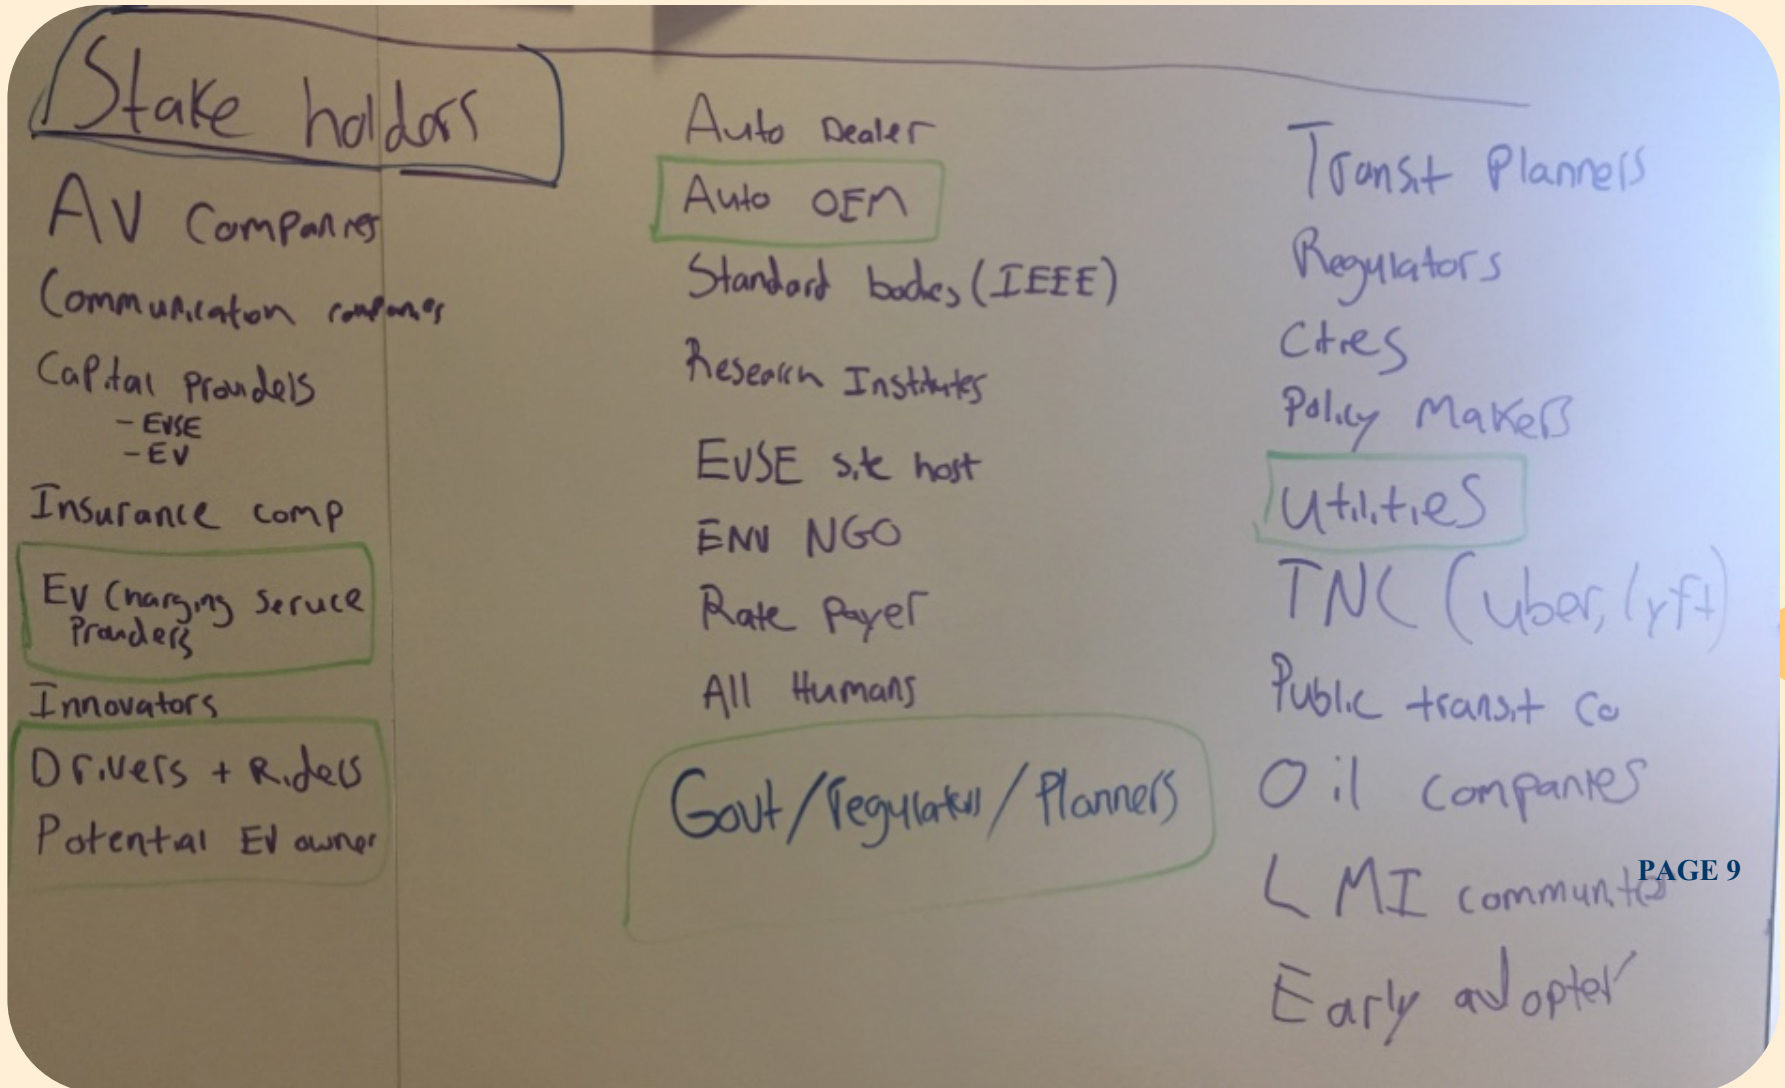 Stake holders
AV Companies
Communication companies
Capital Providers
- EVSE
- EV
Insurance comp
EV Charging Service
Providers
Innovators
Drivers + Riders
Potential EV owner
Auto Dealer
Auto OEM
Standard bodies (IEEE)
Research Institutes
EVSE site host
ENV NGO
Rate Payer
All Humans
Govt/regulators/Planners
Transit Planners
Regulators
Cities
Policy Makers
Utilities
TNC (uber, lyft)
Public transit co
Oil companies
LMI communities
PAGE 9
Early adopter